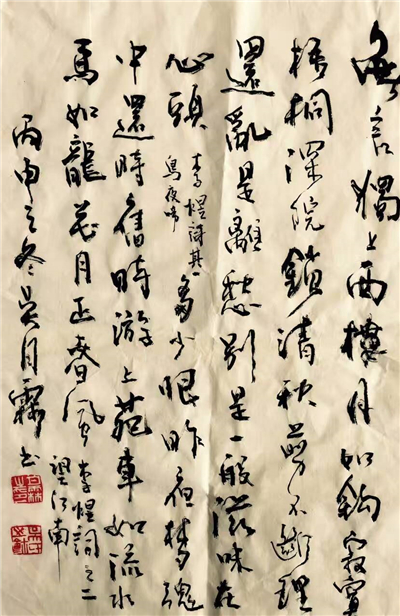 無言獨上西樓月如鉤寂寞
梧桐深院鎖清秋剪不斷理
還亂是離愁別是一般滋味在
心頭
李煜詞其一
烏夜啼
多少恨昨夜夢魂
中還時舊時游上苑車如流水
馬如龍花月正春風
李煜詞之二
望江南
丙申之冬吳月霖书